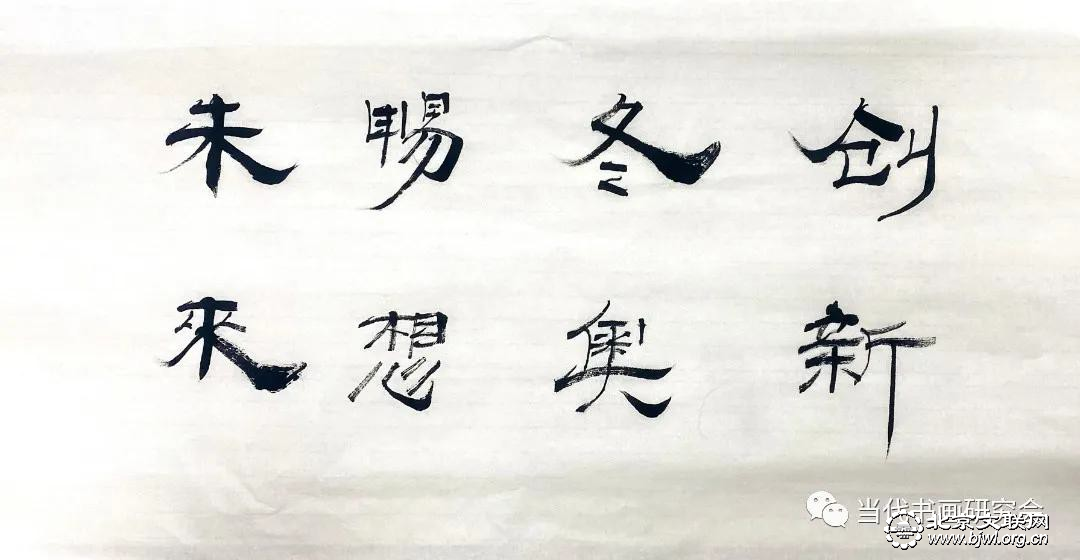 创新
冬奥
暢想
未來
当代书画研究会
北京文联网
www.bjwl.org.cn